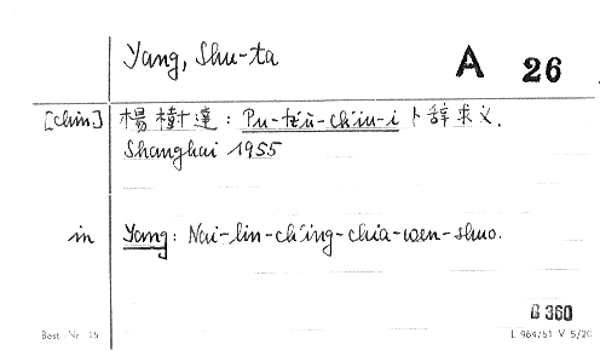 Yang, Shu-ta
A 26
[chin] 楊樹達: Pu-tz'ŭ-ch'iu-i 卜辞求义.
Shanghai 1955
in Yang: Nai-lin-ch'ing-chia-wen-shuo.
B 360
Best.-Nr. 15
L 964/51 V 5/20